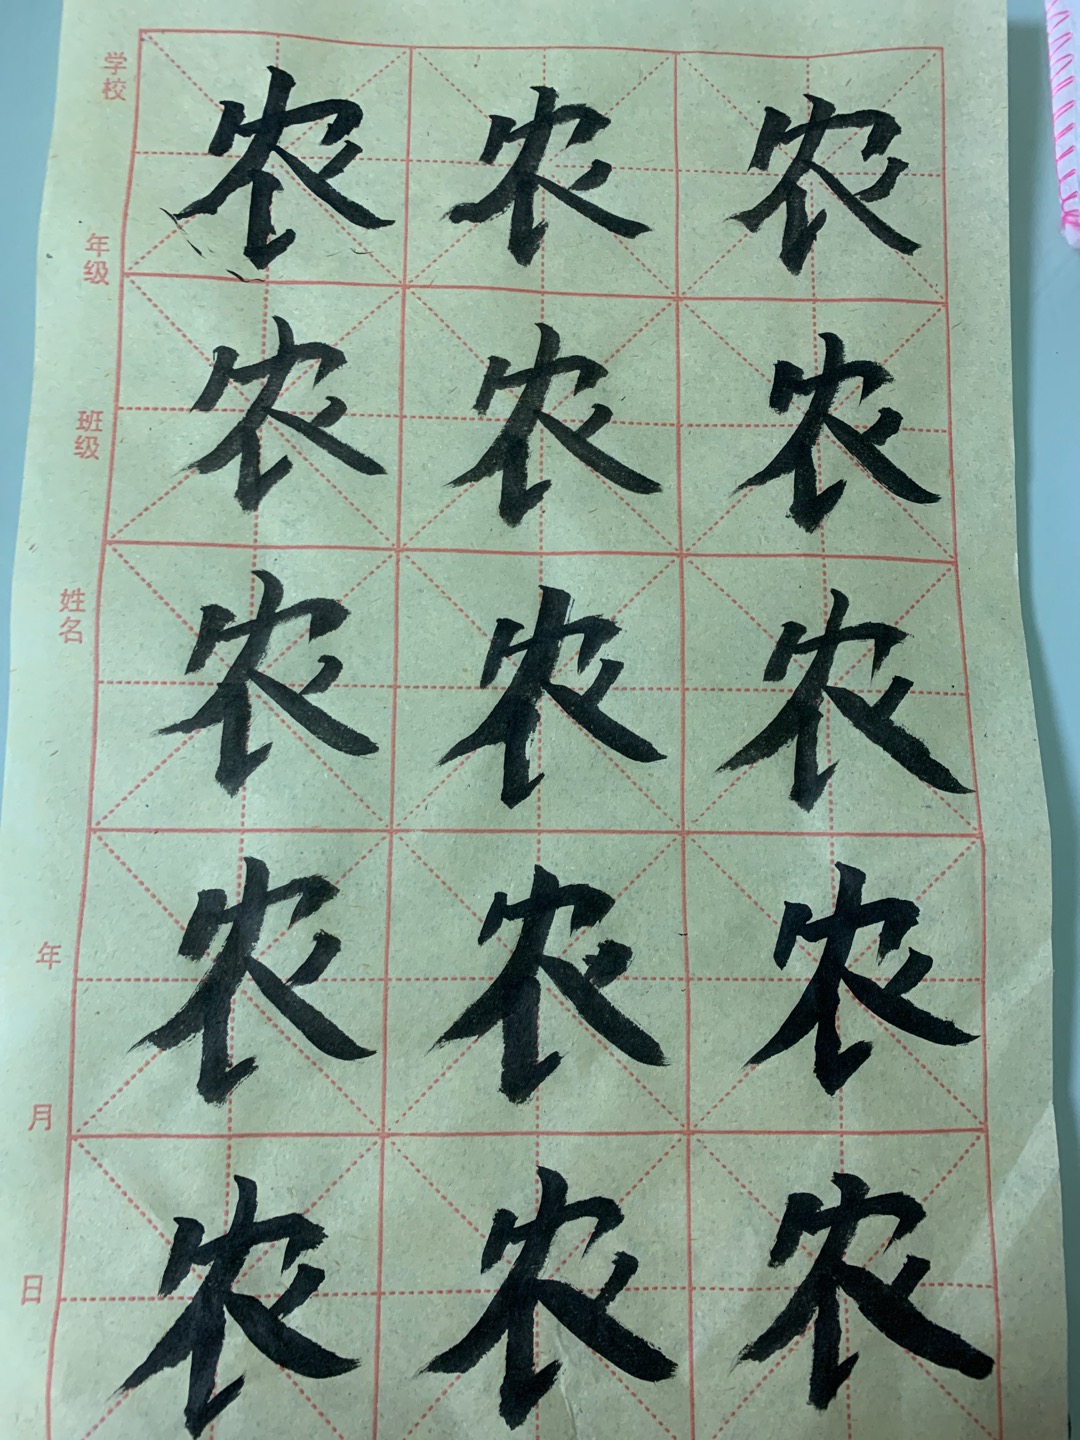 学校
年级
班级
姓名
年
月
日
农 农 农
农 农 农
农 农 农
农 农 农
农 农 农